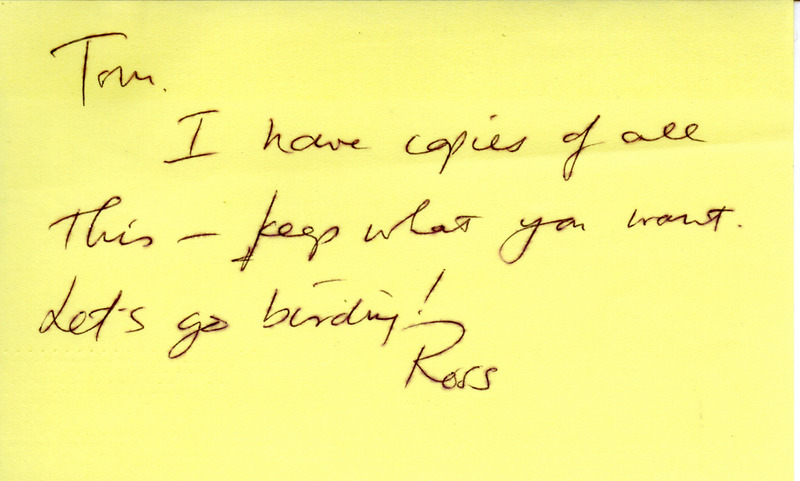 Tom.
I have copies of all
this – keep what you want.
Let's go birding!
Ross